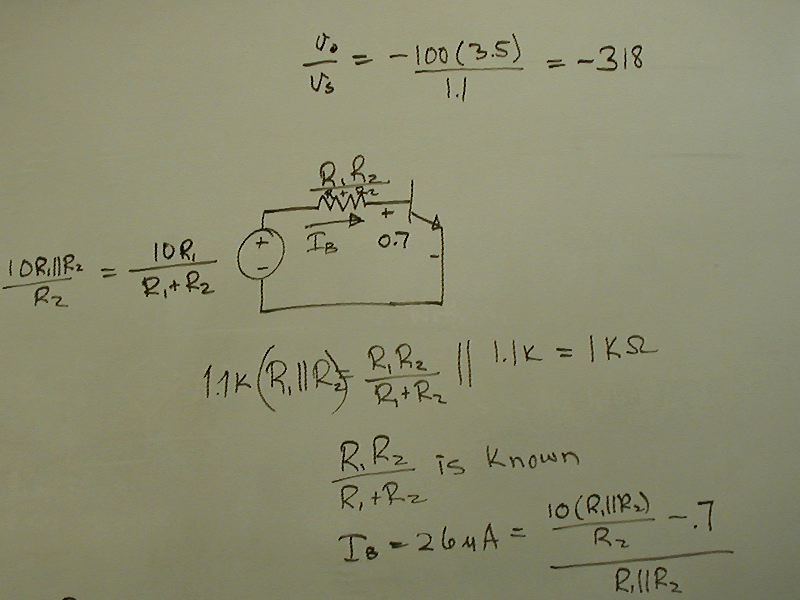 v₀/vₛ = -100(3.5)/1.1 = -318
R₁R₂/R₁+R₂
+
I_B 0.7
+
-
-
10R₁||R₂/R₂ = 10R₁/R₁+R₂
1.1K(R₁||R₂)= R₁R₂/R₁+R₂ || 1.1K = 1KΩ
R₁R₂/R₁+R₂ is known
I_B = 26μA = 10(R₁||R₂)/R₂ -.7/R₁||R₂